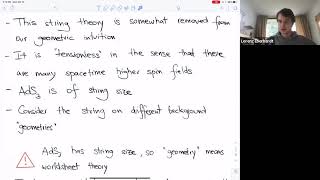 - This string theory is somewhat removed from
our geometric intuition
- It is "tensionless" in the sense that there
are many spacetime higher spin fields
- AdS3 is of string size
- Consider the string on different background
"geometries"
AdS3 has string size, so "geometry" means
worldsheet theory
Lorenz Eberhardt